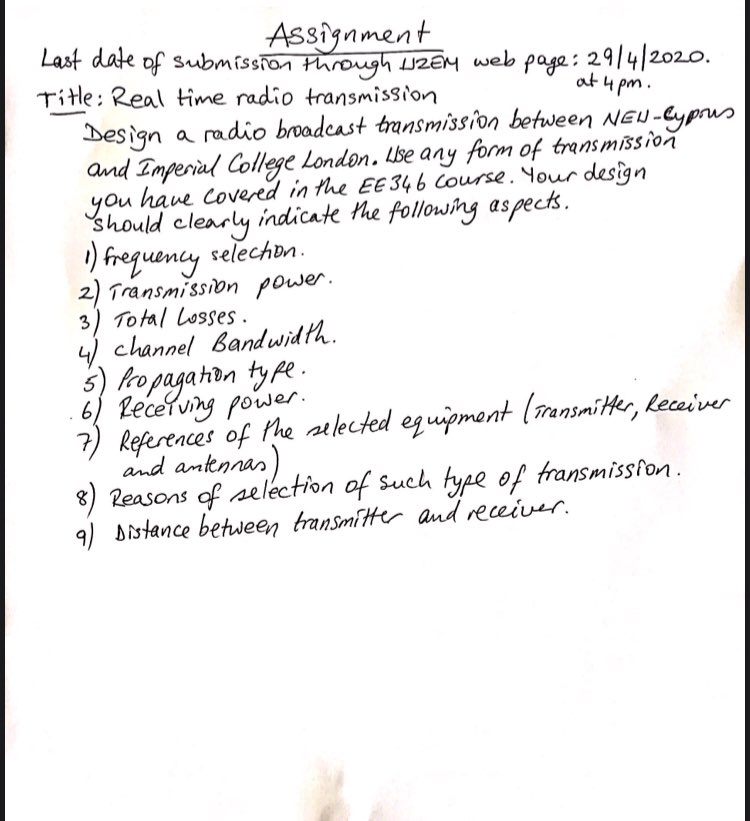 Assignment
Last date of submission through UZEM web page: 29/4/2020.
at 4 pm.
Title: Real time radio transmission
Design a radio broadcast transmission between NEU-Cyprus
and Imperial College London. Use any form of transmission
you have covered in the EE346 course. Your design
should clearly indicate the following aspects.
1) frequency selection.
2) Transmission power.
3) Total Losses.
4) channel Bandwidth.
5) Propagation type.
6) Receiving power.
7) References of the selected equipment (Transmitter, Receiver
and antennas)
8) Reasons of selection of such type of transmission.
9) Distance between transmitter and receiver.